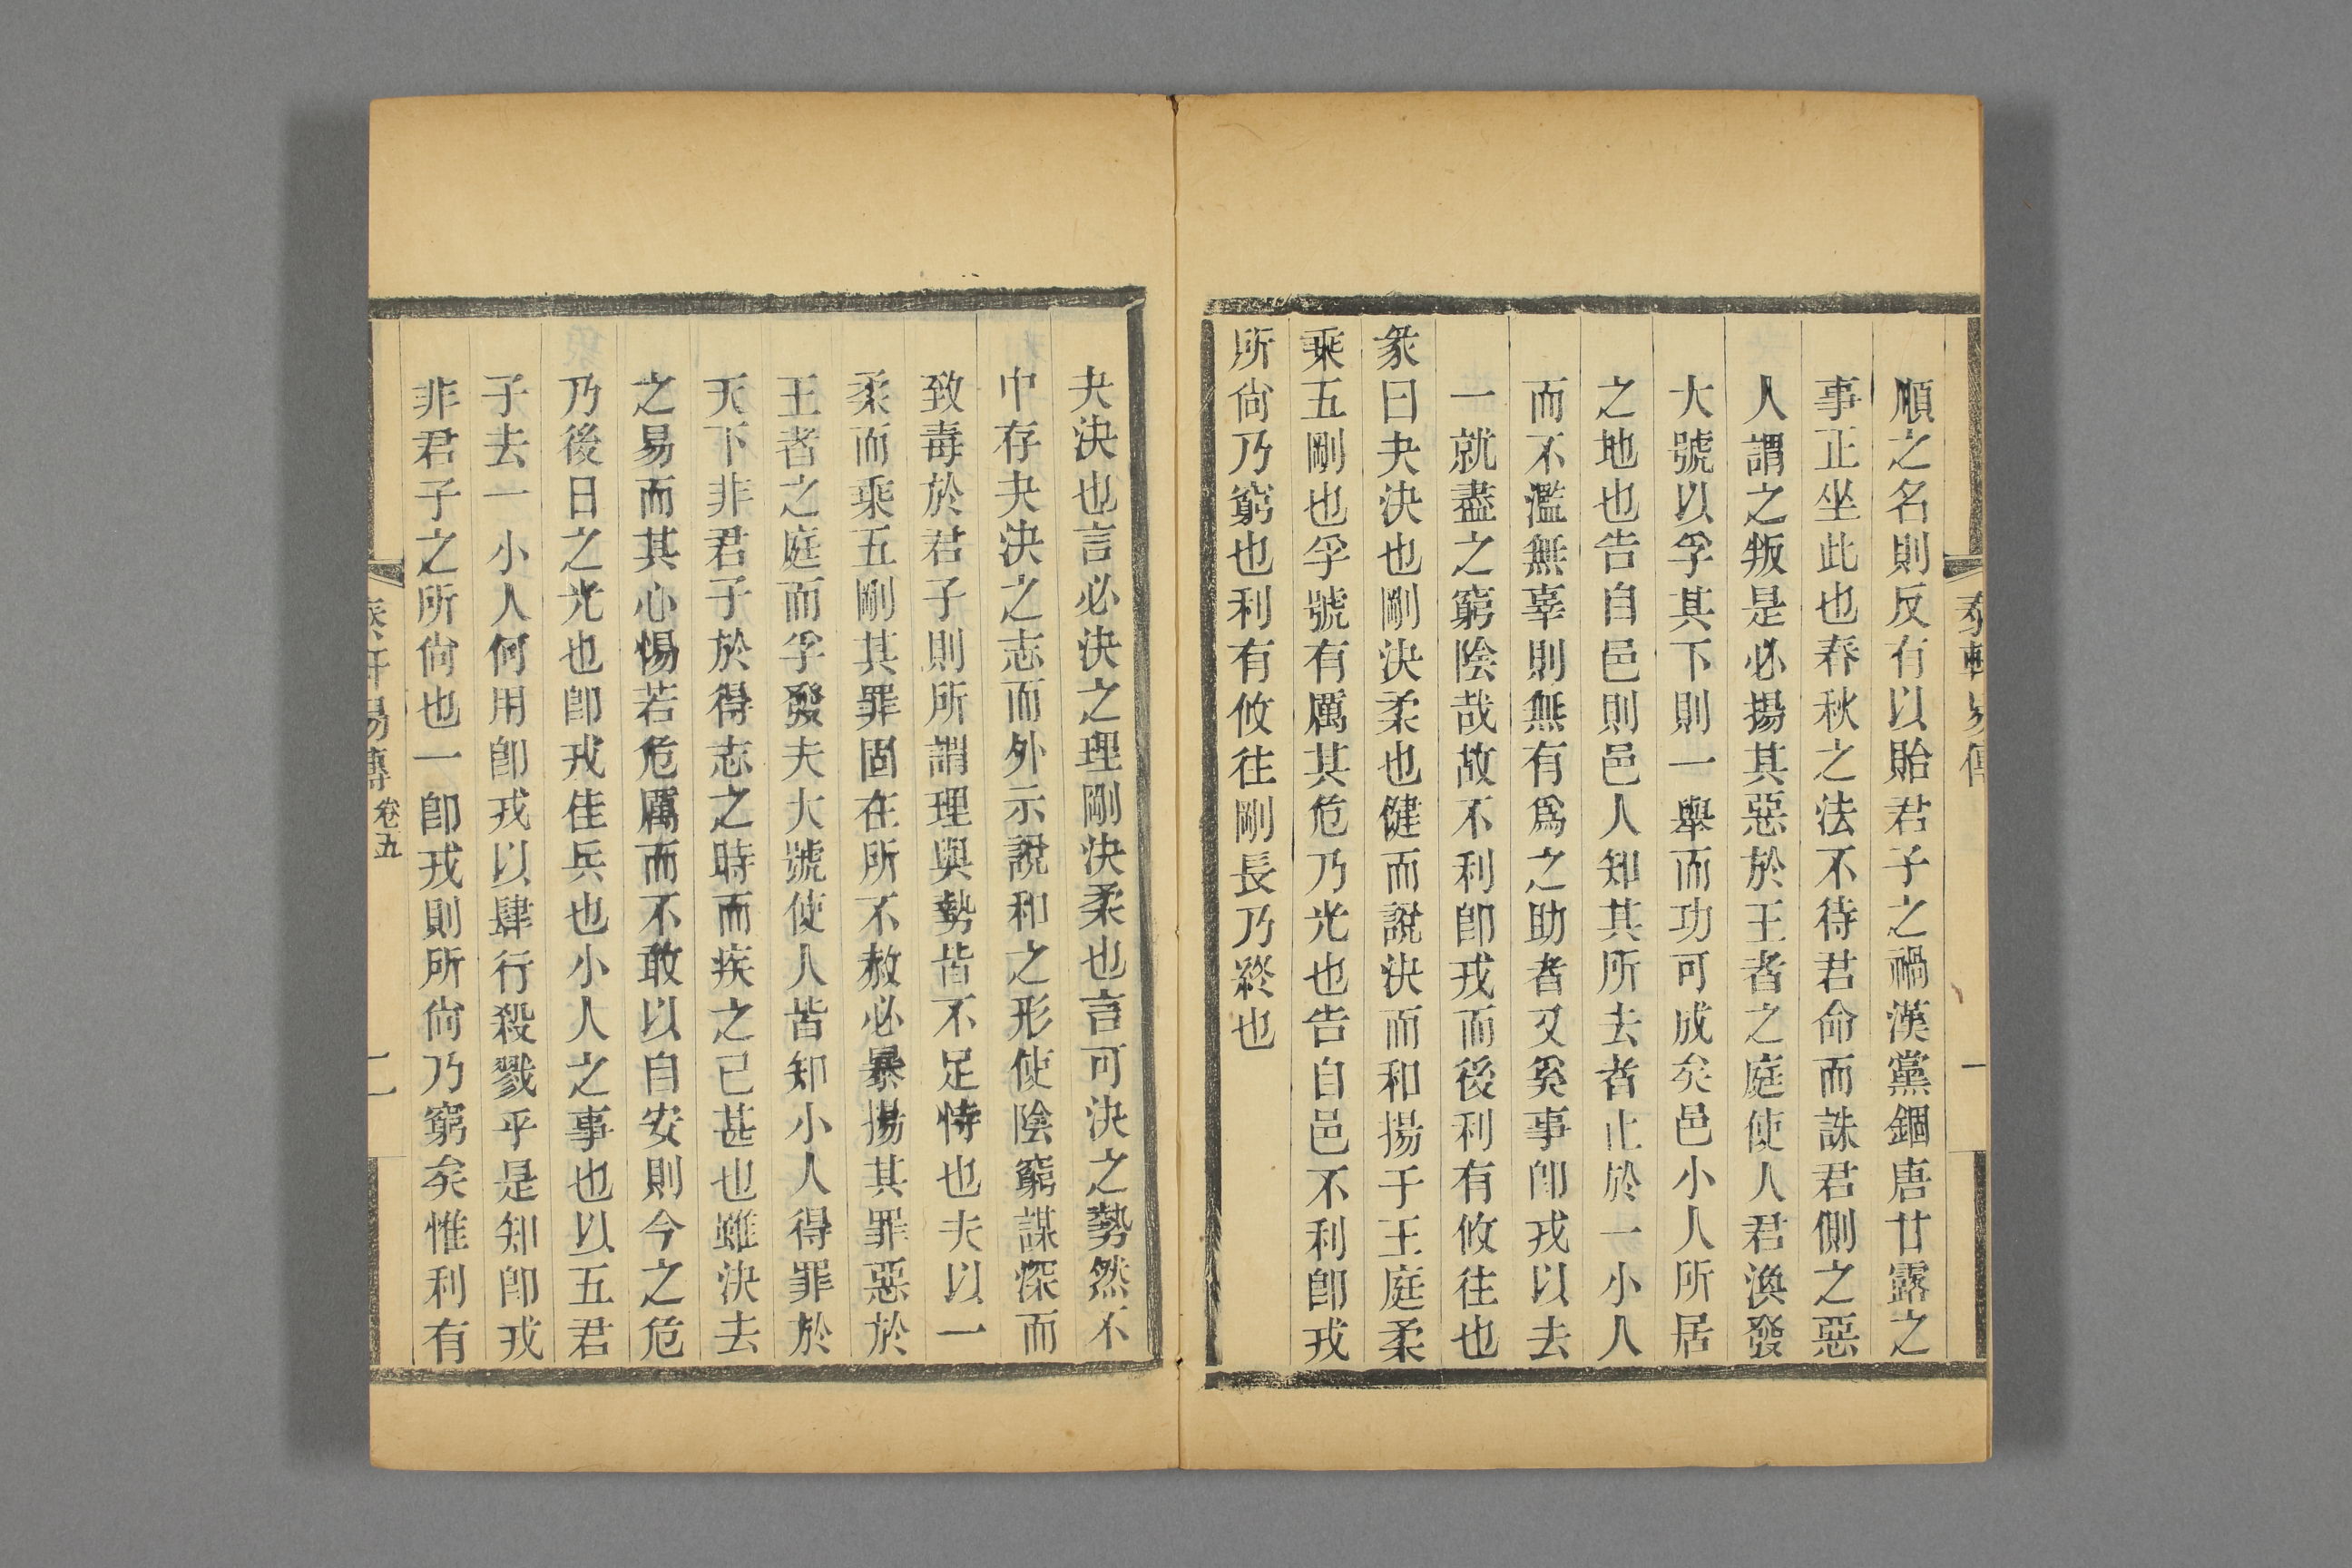 順之名則反有以貽君子之禍漢黨錮唐廿露之
事正坐此也春秋之法不待君命而誅君側之惡
人謂之叛是必揚其惡於王者之庭使人君渙發
大號以孚其下則一舉而功可成矣邑小人所居
之地也告自邑則邑人知其所去者止於一小人
而不濫無辜則無有爲之助者又奚事卽戎以去
一就盡之窮陰哉故不利卽戎而後利有攸往也
彖曰夬決也剛決柔也健而說決而和揚于王庭柔
乘五剛也孚號有厲其危乃光也告自邑不利卽戎
所尙乃窮也利有攸往剛長乃終也
夬決也言必決之理剛決柔也言可決之勢然不
中存夬決之志而外示說和之形使陰窮謀深而
致毒於君子則所謂理與勢皆不足恃也夫以一
柔而乘五剛其罪固在所不赦必暴揚其罪惡於
王者之庭而孚發夫大號使人皆知小人得罪於
天下非君子於得志之時而疾之已甚也雖決去
之易而其心惕若危厲而不敢以自安則今之危
乃後日之光也卽戎佳兵也小人之事也以五君
子去一小人何用卽戎以肆行殺戮乎是知卽戎
非君子之所尙也一卽戎則所尙乃窮矣惟利有
易傳 卷五 二